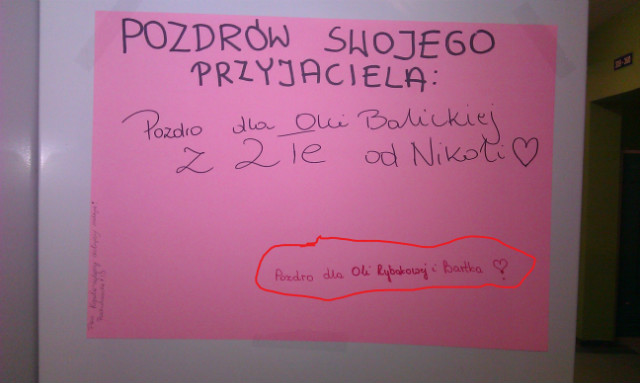 POZDRÓW SWOJEGO
PRZYJACIELA:
Pozdro dla Oli Balickiej
z 2 1e od Nikoli ♡
Pozdro dla Oli Rybakowej i Bartka ♡